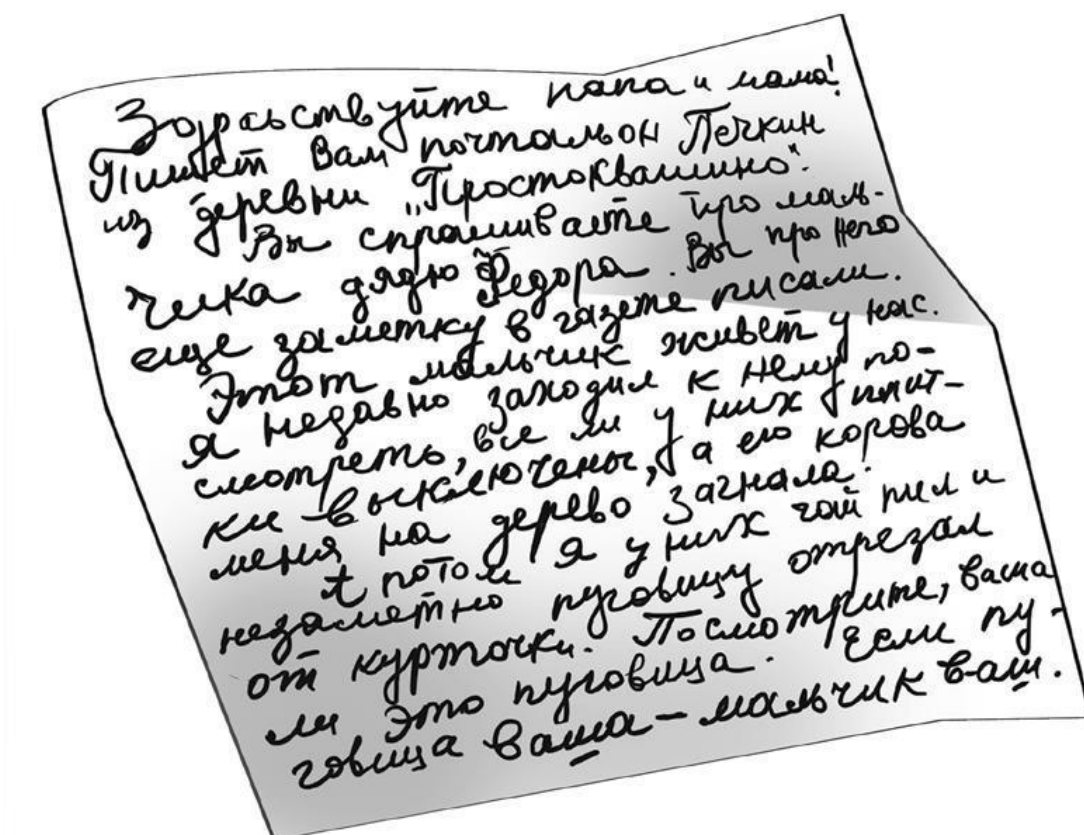 Здравствуйте папа и мама!
Пишет Вам почтальон Печкин
из деревни „Простоквашино“.
Вы спрашиваете про маль-
чика дядю Федора. Вы про него
еще заметку в газете писали.
Этот мальчик живет у нас.
Я недавно заходил к нему по-
смотреть, все ли у них плит-
ки выключены, а его корова
меня на дерево загнала.
А потом я у них чай пил и
незаметно пуговицу отрезал
от курточки. Посмотрите, ваша
ли это пуговица. Если пу-
говица ваша – мальчик ваш.